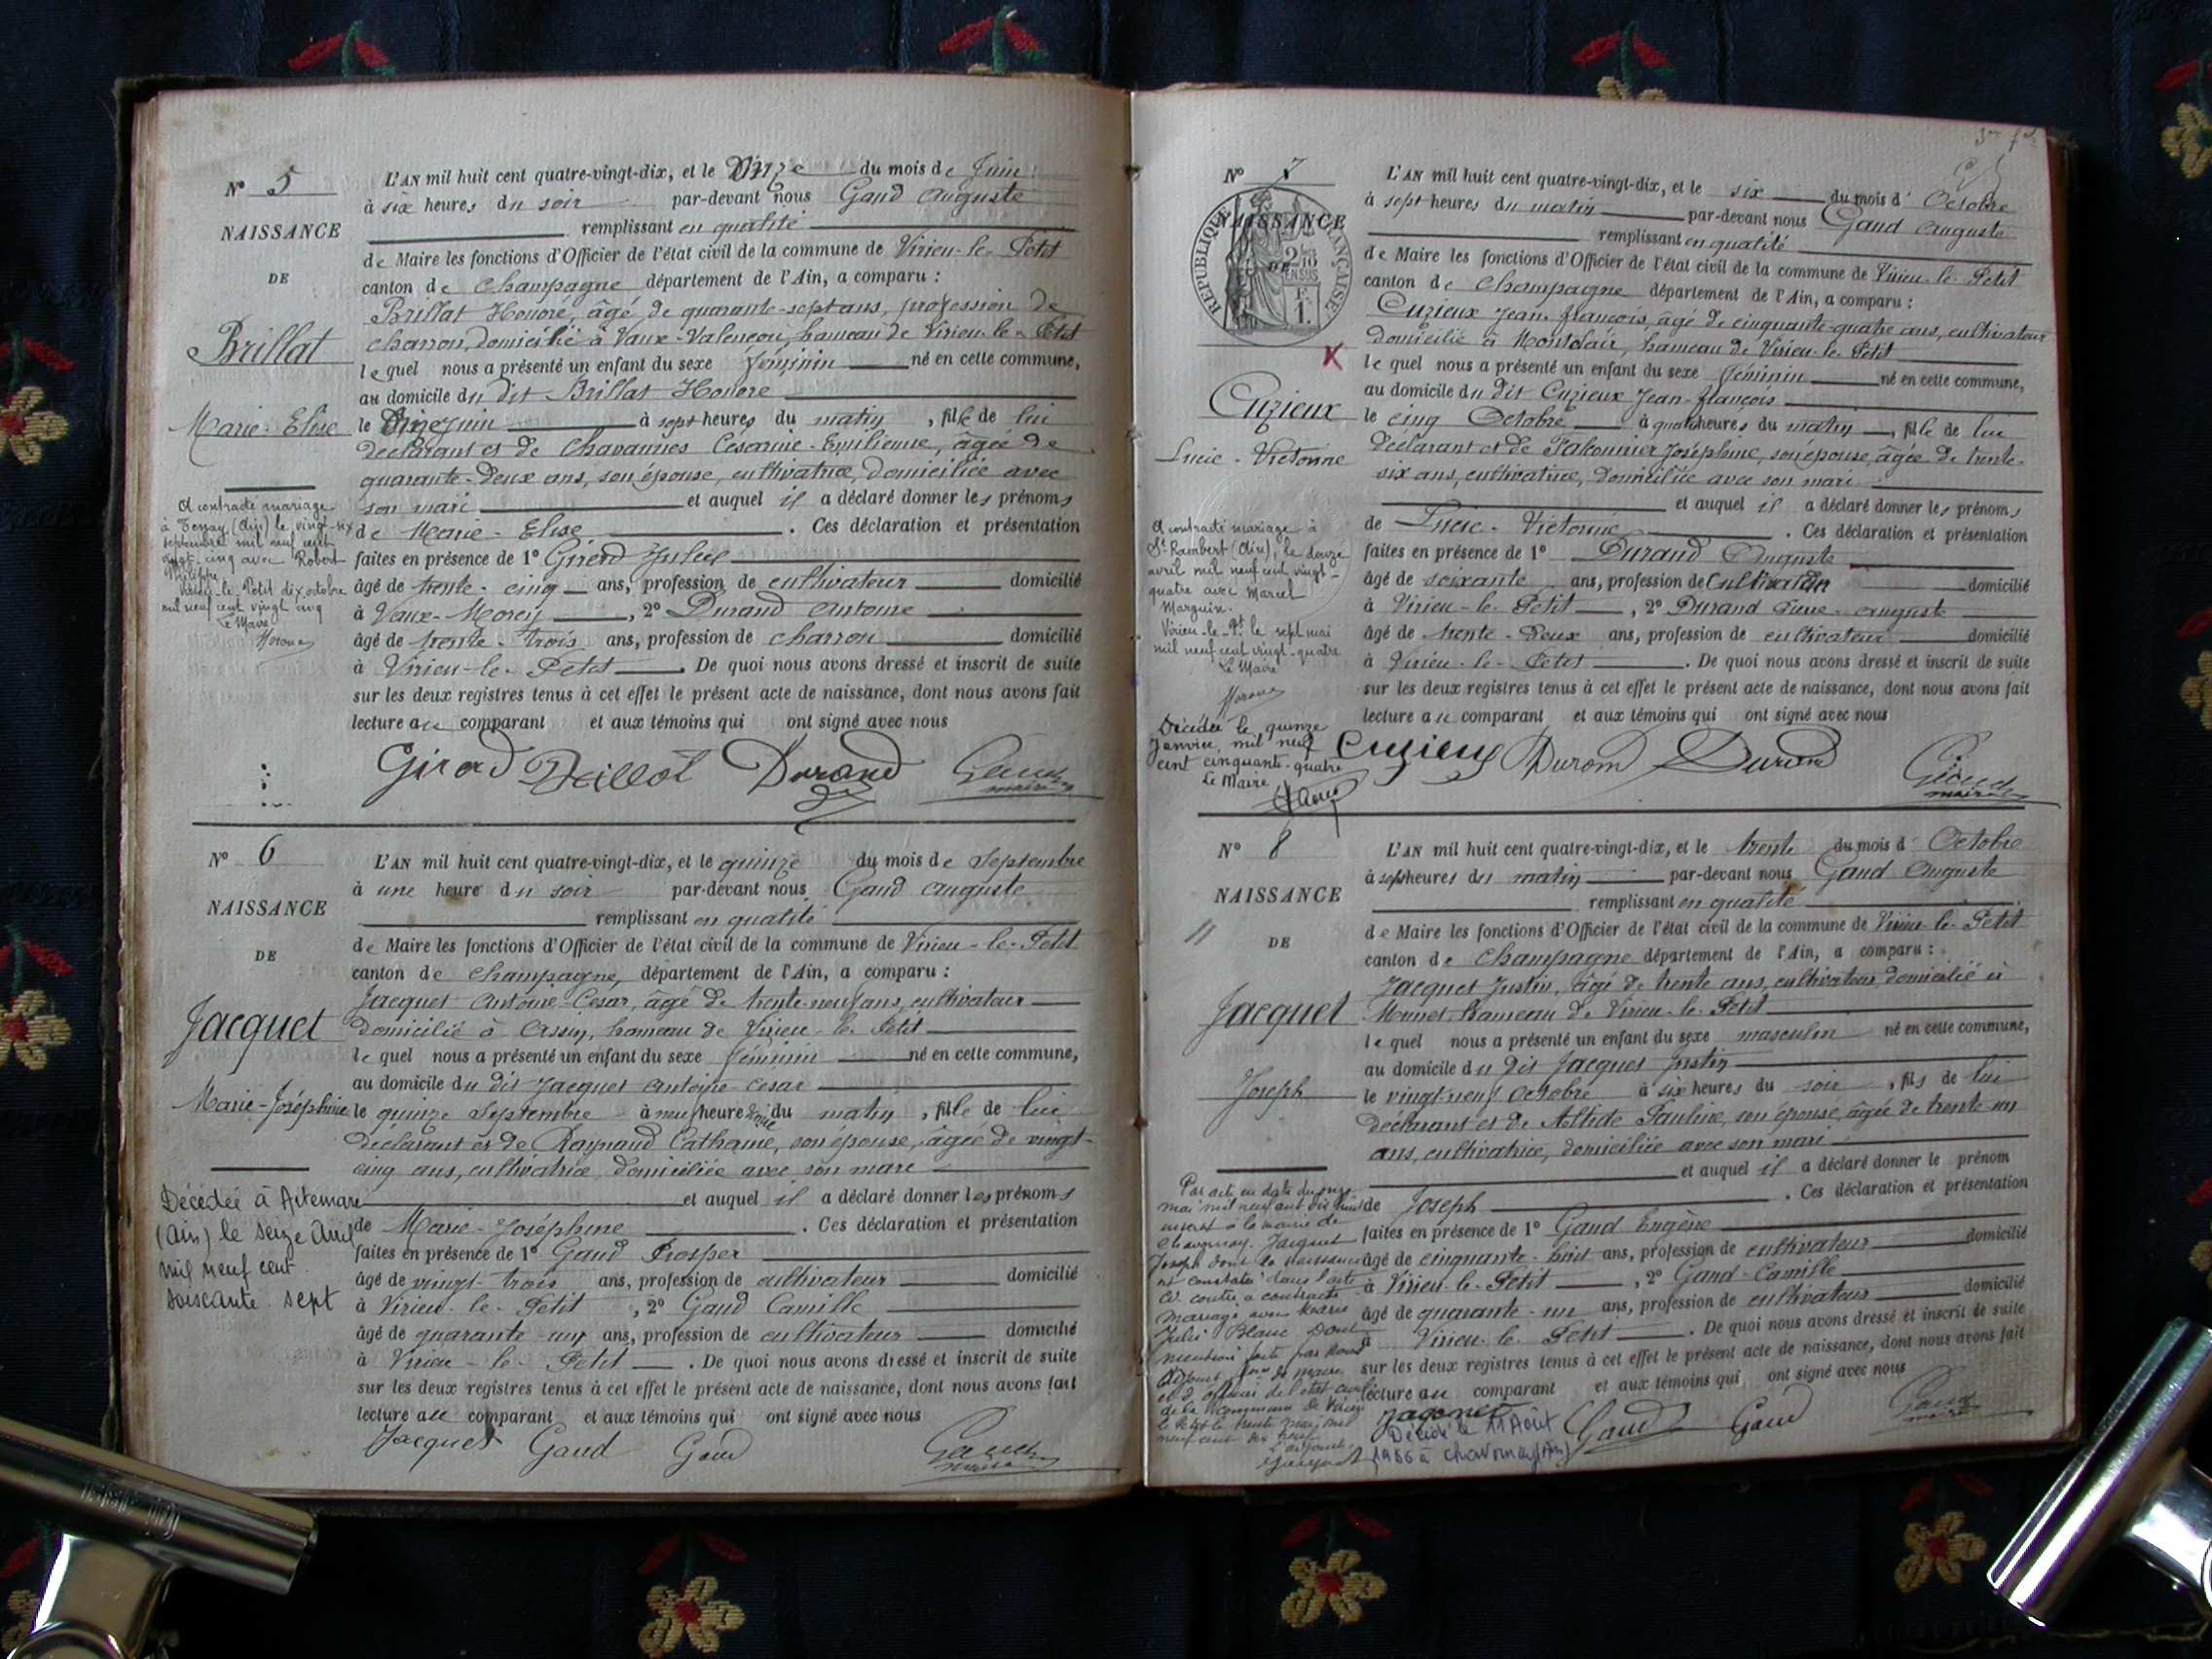 N° 5
NAISSANCE
DE
Brillat
Marie-Elise
A contracté mariage
à Tenay (Ain) le vingt-six
septembre mil neuf cent
vingt-cinq avec Robert
Philippe
Virieu-le-Petit dix octobre
mil neuf cent vingt cinq
Le Maire
L'AN mil huit cent quatre-vingt-dix, et le Onze du mois de Juin
à six heures du soir par-devant nous Gaud Auguste
remplissant en qualité
de Maire les fonctions d'Officier de l'état civil de la commune de Virieu-le-Petit
canton de Champagne département de l'Ain, a comparu :
Brillat Honoré, âgé de quarante-sept ans, profession de
charron, domicilié à Vaux-Valencou, hameau de Virieu-le-Petit
lequel nous a présenté un enfant du sexe féminin né en cette commune,
au domicile du dit Brillat Honoré
le Onze juin à sept heures du matin, fille de lui
déclarant et de Chavannes Césarine-Emilienne, âgée de
quarante-deux ans, son épouse, cultivatrice, domiciliée avec
son mari et auquel il a déclaré donner les prénoms
de Marie-Elise. Ces déclaration et présentation
faites en présence de 1° Girerd Jules
âgé de trente-cinq ans, profession de cultivateur domicilié
à Vaux-Morey, 2° Durand Antoine
âgé de trente-trois ans, profession de charron domicilié
à Virieu-le-Petit. De quoi nous avons dressé et inscrit de suite
sur les deux registres tenus à cet effet le présent acte de naissance, dont nous avons fait
lecture au comparant et aux témoins qui ont signé avec nous
Girerd Brillat Durand Gaud
maire
N° 6
NAISSANCE
DE
Jacquet
Marie-Joséphine
Décédée à Artemare
(Ain) le seize Avril
mil neuf cent
soixante-sept
L'AN mil huit cent quatre-vingt-dix, et le quinze du mois de Septembre
à une heure du soir par-devant nous Gaud Auguste
remplissant en qualité
de Maire les fonctions d'Officier de l'état civil de la commune de Virieu-le-Petit
canton de Champagne, département de l'Ain, a comparu :
Jacquet Antoine-César, âgé de trente-neuf ans, cultivateur
domicilié à Assin, hameau de Virieu-le-Petit
lequel nous a présenté un enfant du sexe féminin né en cette commune,
au domicile du dit Jacquet Antoine-César
le quinze Septembre à neuf heures du matin, fille de lui
déclarant et de Raynaud Catherine, son épouse, âgée de vingt-
cinq ans, cultivatrice, domiciliée avec son mari
et auquel il a déclaré donner les prénoms
de Marie-Joséphine. Ces déclaration et présentation
faites en présence de 1° Gaud Prosper
âgé de vingt-trois ans, profession de cultivateur domicilié
à Virieu-le-Petit, 2° Gaud Camille
âgé de quarante-un ans, profession de cultivateur domicilié
à Virieu-le-Petit. De quoi nous avons dressé et inscrit de suite
sur les deux registres tenus à cet effet le présent acte de naissance, dont nous avons fait
lecture au comparant et aux témoins qui ont signé avec nous
Jacquet Gaud Gaud Gaud
maire
N° 7
NAISSANCE
DE
RÉPUBLIQUE FRANÇAISE
2/10 EN SUS
F. 1.
Cuzieux
Lucie-Victorine
A contracté mariage à
St Rambert (Ain), le douze
avril mil neuf cent vingt-
quatre avec Marcel
Marguin.
Virieu-le-Pt le sept mai
mil neuf cent vingt-quatre
Le Maire
Décédée le quinze
Janvier mil neuf
cent cinquante-quatre
Le Maire
L'AN mil huit cent quatre-vingt-dix, et le six du mois d'Octobre
à sept heures du matin par-devant nous Gaud Auguste
remplissant en qualité
de Maire les fonctions d'Officier de l'état civil de la commune de Virieu-le-Petit
canton de Champagne département de l'Ain, a comparu :
Cuzieux Jean-françois, âgé de cinquante-quatre ans, cultivateur
domicilié à Montclair, hameau de Virieu-le-Petit
lequel nous a présenté un enfant du sexe féminin né en cette commune,
au domicile du dit Cuzieux Jean-françois
le cinq Octobre à quatre heures du matin, fille de lui
déclarant et de Falconnier Joséphine, son épouse, âgée de trente-
six ans, cultivatrice, domiciliée avec son mari
et auquel il a déclaré donner les prénoms
de Lucie-Victorine. Ces déclaration et présentation
faites en présence de 1° Durand Auguste
âgé de soixante ans, profession de Cultivateur domicilié
à Virieu-le-Petit, 2° Durand auguste
âgé de trente-deux ans, profession de cultivateur domicilié
à Virieu-le-Petit. De quoi nous avons dressé et inscrit de suite
sur les deux registres tenus à cet effet le présent acte de naissance, dont nous avons fait
lecture au comparant et aux témoins qui ont signé avec nous
Cuzieux Durand Durand Gaud
maire
N° 8
NAISSANCE
DE
Jacquet
Joseph
Par acte en date du onze
mai mil neuf cent dix
inscrit à la mairie de
Chavornay Jacquet
Joseph dont la naissance
est constatée dans l'acte
ci-contre a contracté
mariage avec Marie
Julie Blanc Dont
mention faite par nous
de maire
et d'officier de l'état civil
de la commune de Virieu
le Petit le trente mai mil
neuf cent dix neuf
L'adjoint
L'AN mil huit cent quatre-vingt-dix, et le trente du mois d'Octobre
à sept heures du matin par-devant nous Gaud Auguste
remplissant en qualité
de Maire les fonctions d'Officier de l'état civil de la commune de Virieu-le-Petit
canton de Champagne département de l'Ain, a comparu :
Jacquet Justin, âgé de trente ans, cultivateur, domicilié à
hameau de Virieu-le-Petit
lequel nous a présenté un enfant du sexe masculin né en cette commune,
au domicile du dit Jacquet Justin
le vingt-neuf Octobre à six heures du soir, fils de lui
déclarant et de Pauline, son épouse, âgée de trente-un
ans, cultivatrice, domiciliée avec son mari
et auquel il a déclaré donner le prénom
de Joseph. Ces déclaration et présentation
faites en présence de 1° Gaud Eugène
âgé de cinquante-huit ans, profession de cultivateur domicilié
à Virieu-le-Petit, 2° Gaud-Camille
âgé de quarante-un ans, profession de cultivateur domicilié
à Virieu-le-Petit. De quoi nous avons dressé et inscrit de suite
sur les deux registres tenus à cet effet le présent acte de naissance, dont nous avons fait
lecture au comparant et aux témoins qui ont signé avec nous
Jacquet Gaud Gaud Gaud
maire
Décédé le 11 Août
1986 à Chavornay (Ain)